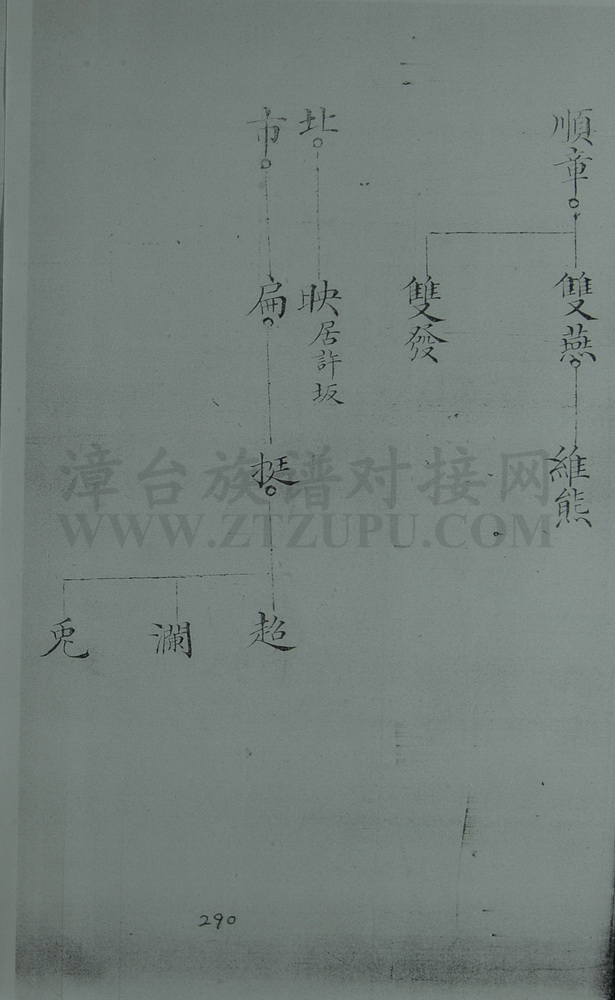 順章
雙燕
維熊
雙發
址
映居許坂
市
扁
挺
超
瀾
兎
漳台族谱对接网
WWW.ZTZUPU.COM
290